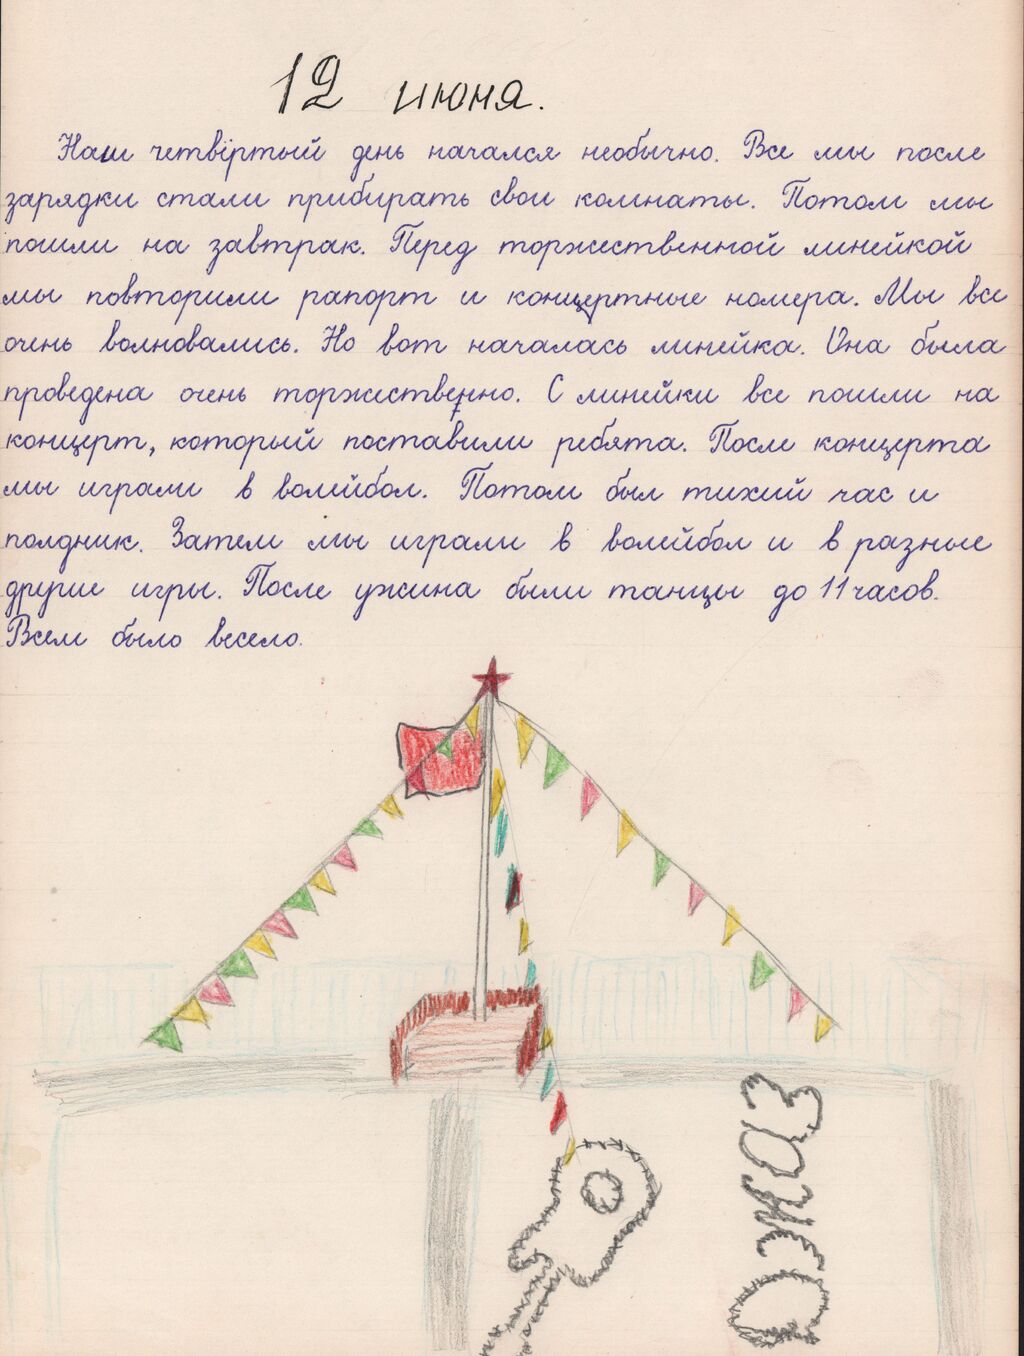 12 июня.
Наш четвёртый день начался необычно. Все мы после
зарядки стали прибирать свои комнаты. Потом мы
пошли на завтрак. Перед торжественной линейкой
мы повторили рапорт и концертные номера. Мы все
очень волновались. Но вот началась линейка. Она была
проведена очень торжественно. С линейки все пошли на
концерт, который поставили ребята. После концерта
мы играли в волейбол. Потом был тихий час и
полдник. Затем мы играли в волейбол и в разные
другие игры. После ужина были танцы до 11 часов.
Всем было весело.